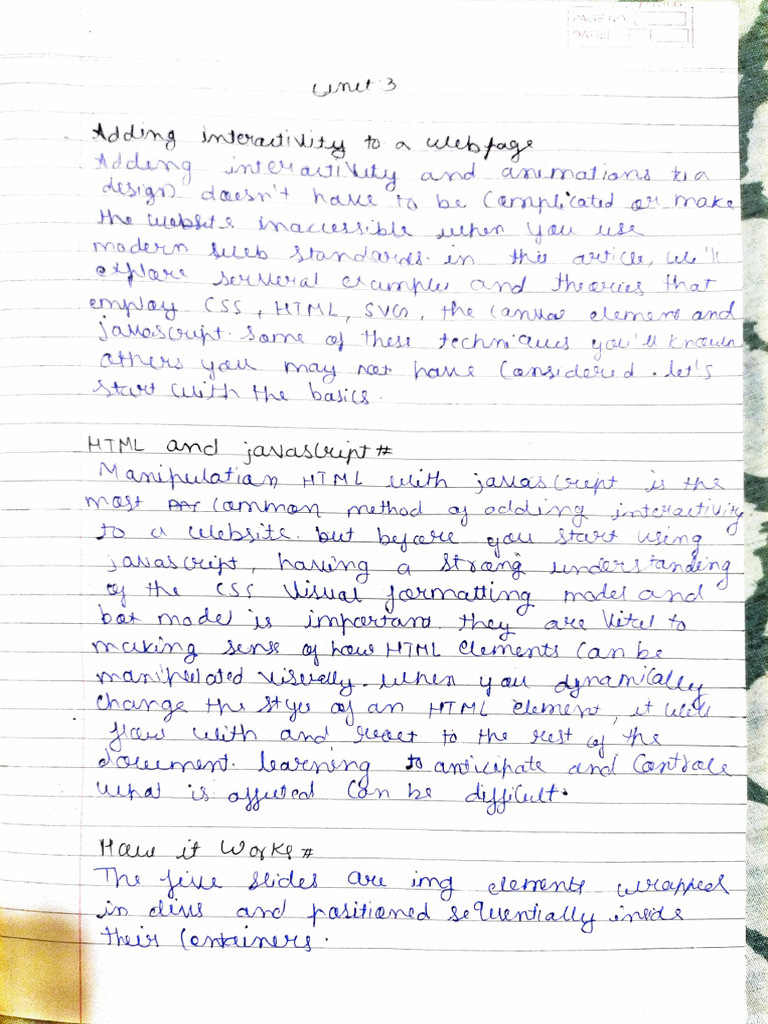 PAGE NO.
DATE
Unit 3
Adding interactivity to a webpage
Adding interactivity and animations to a
design doesn't have to be complicated or make
the website inaccessible when you use
modern web standards. in this article, we'll
explore serveral examples and theories that
employ CSS, HTML, SVG, the canvas element and
javascript. some of these techniques you'll known
others you may not have considered. let's
start with the basics.
HTML and javascript #
Manipulation HTML with javascript is the
most common method of adding interactivity
to a website. but before you start using
javascript, having a strong understanding
of the CSS visual formatting model and
box model is important. they are vital to
making sense of how HTML elements can be
manipulated visually. when you dynamically
change the style of an HTML element, it will
flow with and react to the rest of the
document. learning to anticipate and controle
what is affected can be difficult.
How it works #
The five slides are img elements wrapped
in divs and positioned sequentially inside
their containers.